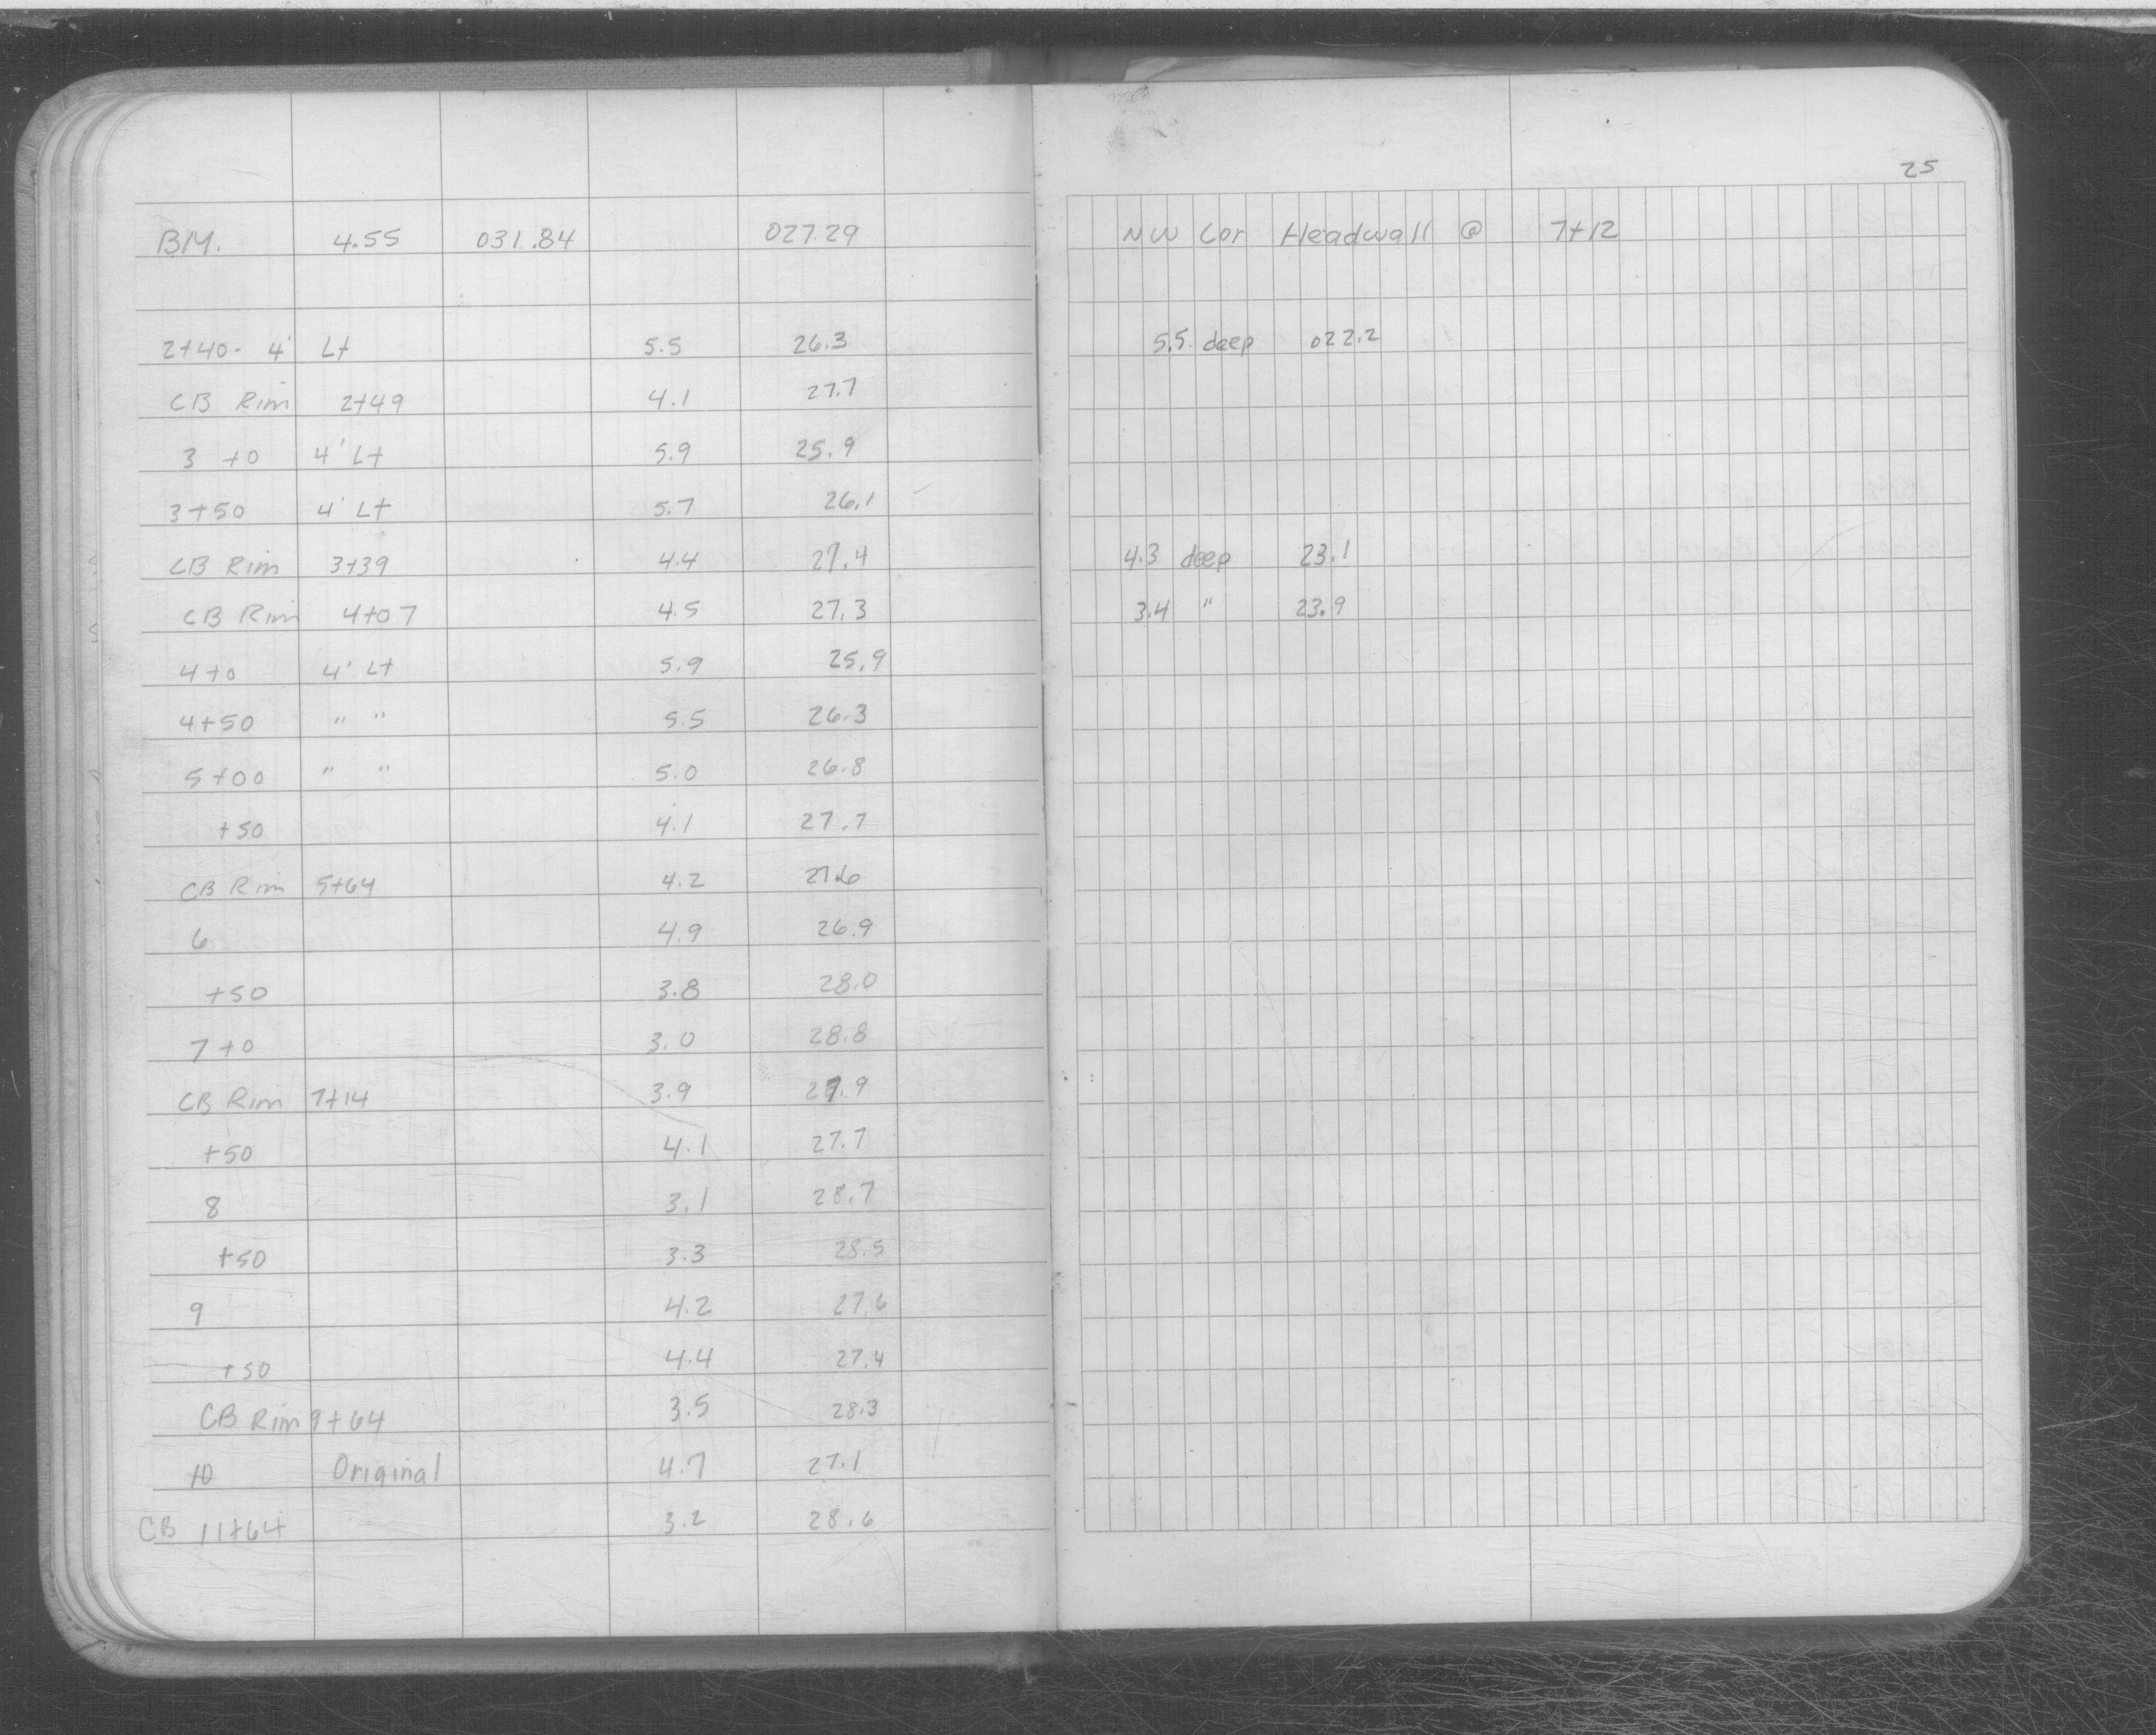 25
BM. 4.55 031.84 027.29 NW Cor Headwall @ 7+12
2+40- 4' Lt 5.5 26.3 5.5 deep 022.2
CB Rim 2+49 4.1 27.7
3 +0 4' Lt 5.9 25.9
3+50 4' Lt 5.7 26.1
CB Rim 3+39 4.4 27.4 4.3 deep 23.1
CB Rim 4+07 4.5 27.3 3.4 " 23.9
4+0 4' Lt 5.9 25.9
4+50 " " 5.5 26.3
5+00 " " 5.0 26.8
+50 4.1 27.7
CB Rim 5+64 4.2 27.6
6 4.9 26.9
+50 3.8 28.0
7+0 3.0 28.8
CB Rim 7+14 3.9 27.9
+50 4.1 27.7
8 3.1 28.7
+50 3.3 28.5
9 4.2 27.6
+50 4.4 27.4
CB Rim 9+64 3.5 28.3
10 Original 4.7 27.1
CB 11+64 3.2 28.6